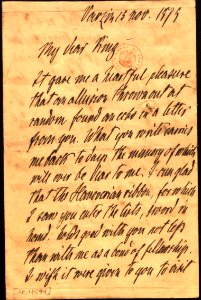 13 nov. 1875
My dear King
It gave me a heartful pleasure
that an allusion thrown out at
random, found an echo in a letter
from you. What you write carries
me back to days the memory of which
will ever be dear to me. I am glad
that the Hanoverian ribbon, for which
I saw you enter the lists, sword in
hand, holds good with you not less
than with me as a bond of fellowship.
I wish it were given to you to